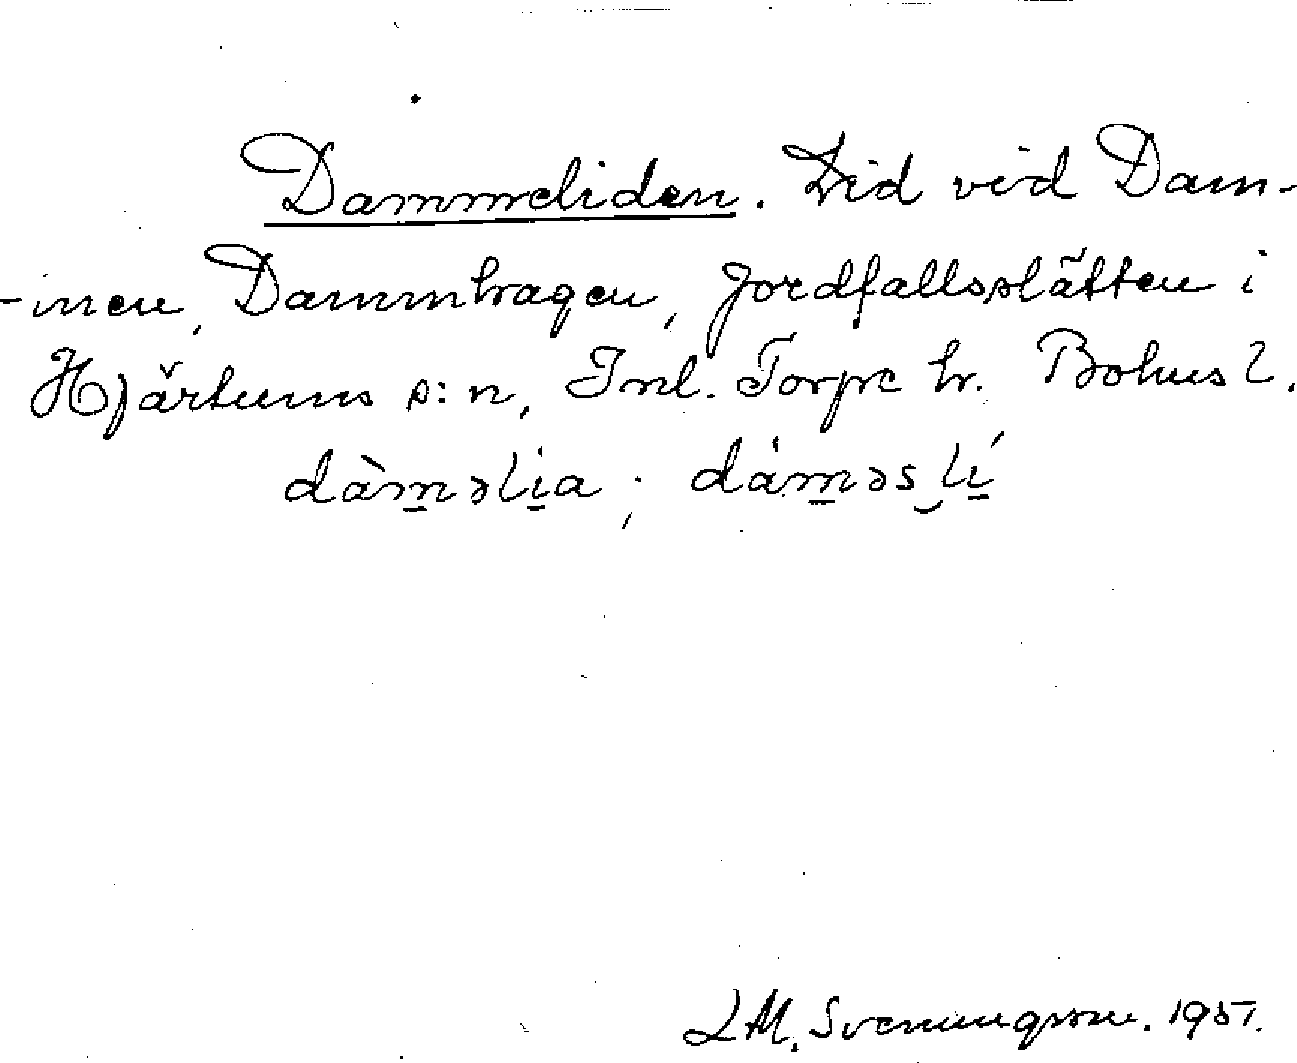 Dammeliden. Lid vid Dam-
-men, Dammhagen, Jordfallsslätten i
Hjärtums s:n, Inl. Torpe hr. Bohusl.
dàm̲əli̲a; dám̲əs‿lí̲
L M. Svenungsson. 1951.